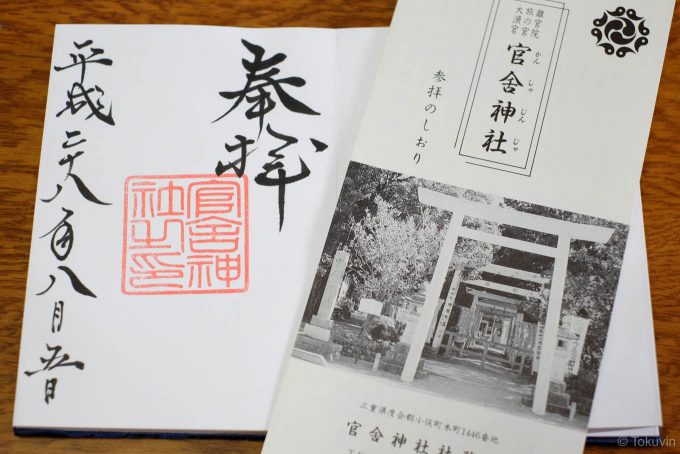 奉拝
官舎神
社之印
平成二十八年八月五日
離宮院
旅の宮
大漁宮
かんしゃじんじゃ
官舎神社
参拝のしおり
三重県度会郡小俣町本町1446番地
官舎神社社
© Tokuvin